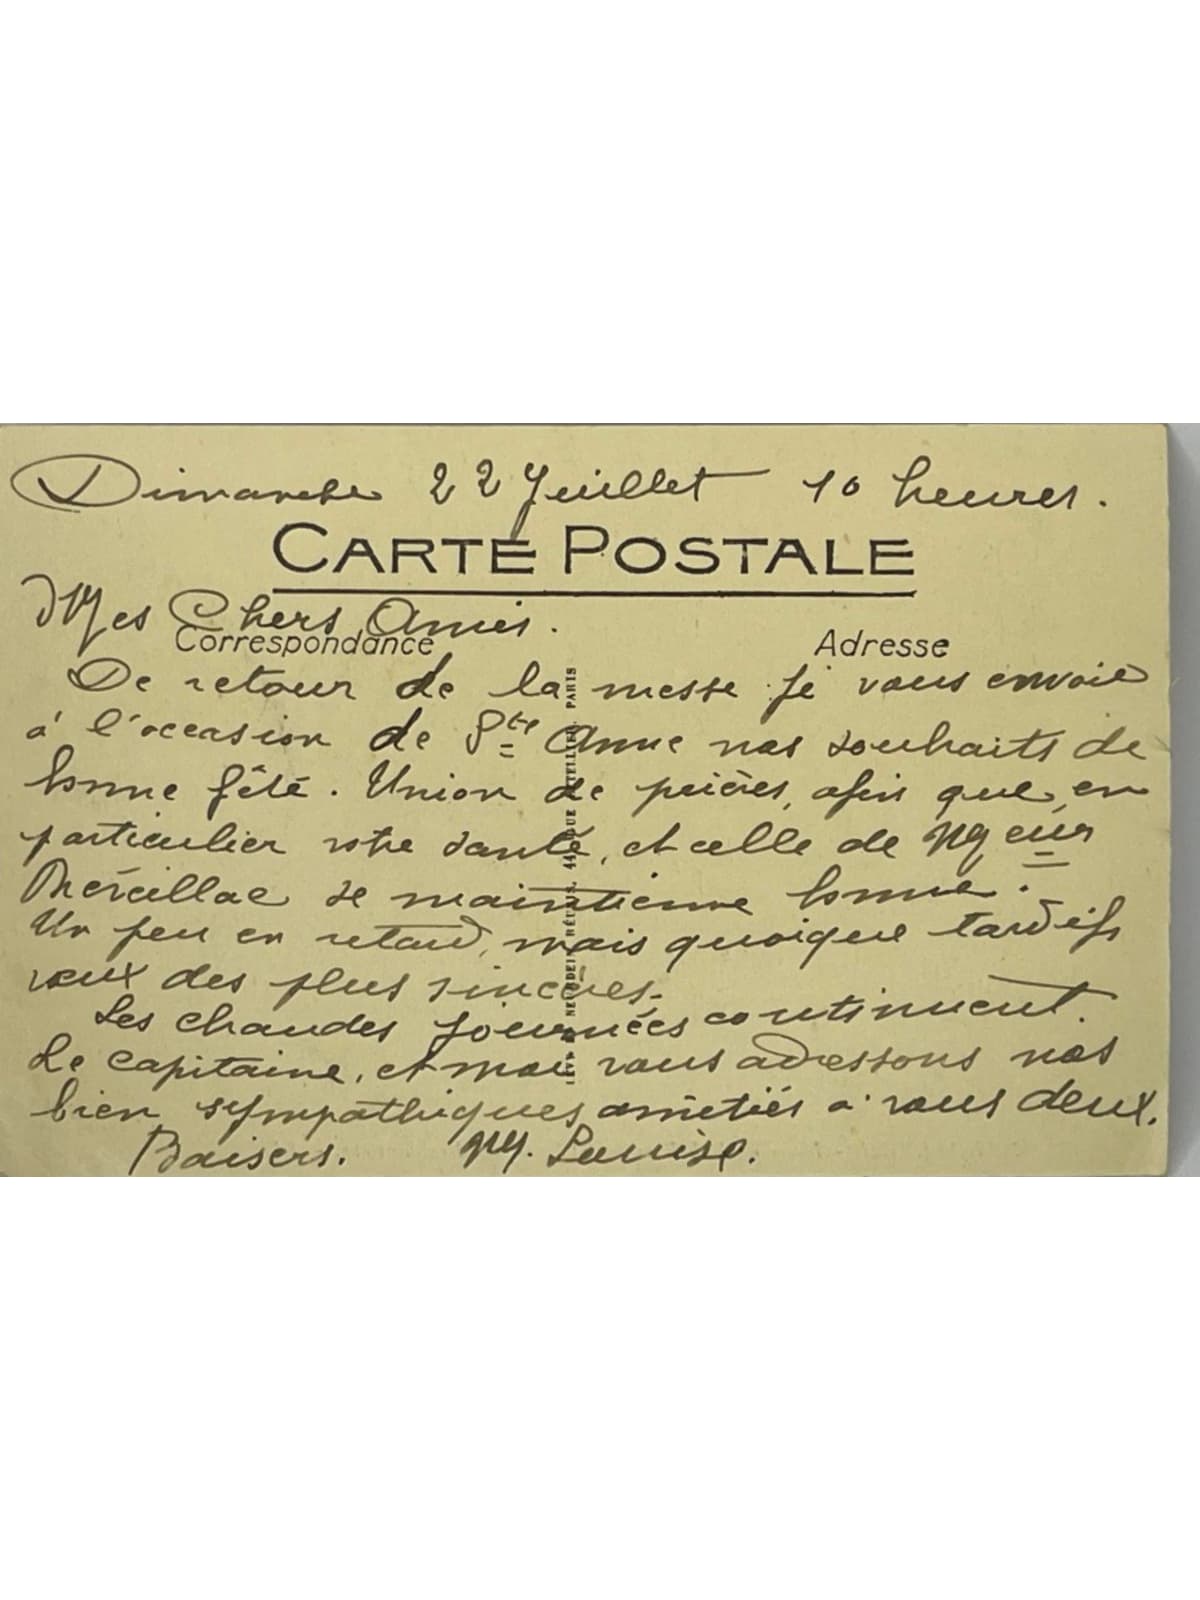 Dimanche 22 Juillet 10 heures.
CARTE POSTALE
Mes Chers Amis.
Correspondance
Adresse
De retour de la messe je vous envoie
à l'occasion de Ste Anne nos souhaits de
bonne fête. Union de prières, afin que, en
particulier votre santé, et celle de Meur
Merveillac se maintienne bonne.
Un peu en retard, mais quoique tardifs
vœux des plus sincères.
Les chaudes journées continuent.
Le capitaine, et moi vous adressons nos
bien sympathiques amitiés à vous deux.
Baisers. M. Louise.
LEVY & NEURDEIN RÉUNIS, 44 RUE LETELLIER, PARIS